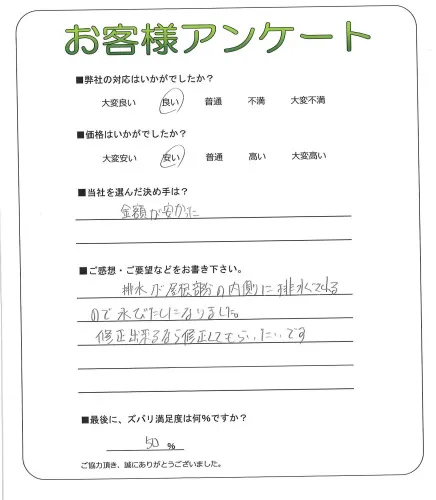 お客様アンケート
■弊社の対応はいかがでしたか？
大変良い 良い 普通 不満 大変不満
■価格はいかがでしたか？
大変安い 安い 普通 高い 大変高い
■当社を選んだ決め手は？
金額が安かった
■ご感想・ご要望などをお書き下さい。
排水が屋根部分の内側に排水されてる
ので水びたしになりました。
修正出来るなら修正してもらいたいです
■最後に、ズバリ満足度は何%ですか？
50 %
ご協力頂き、誠にありがとうございました。